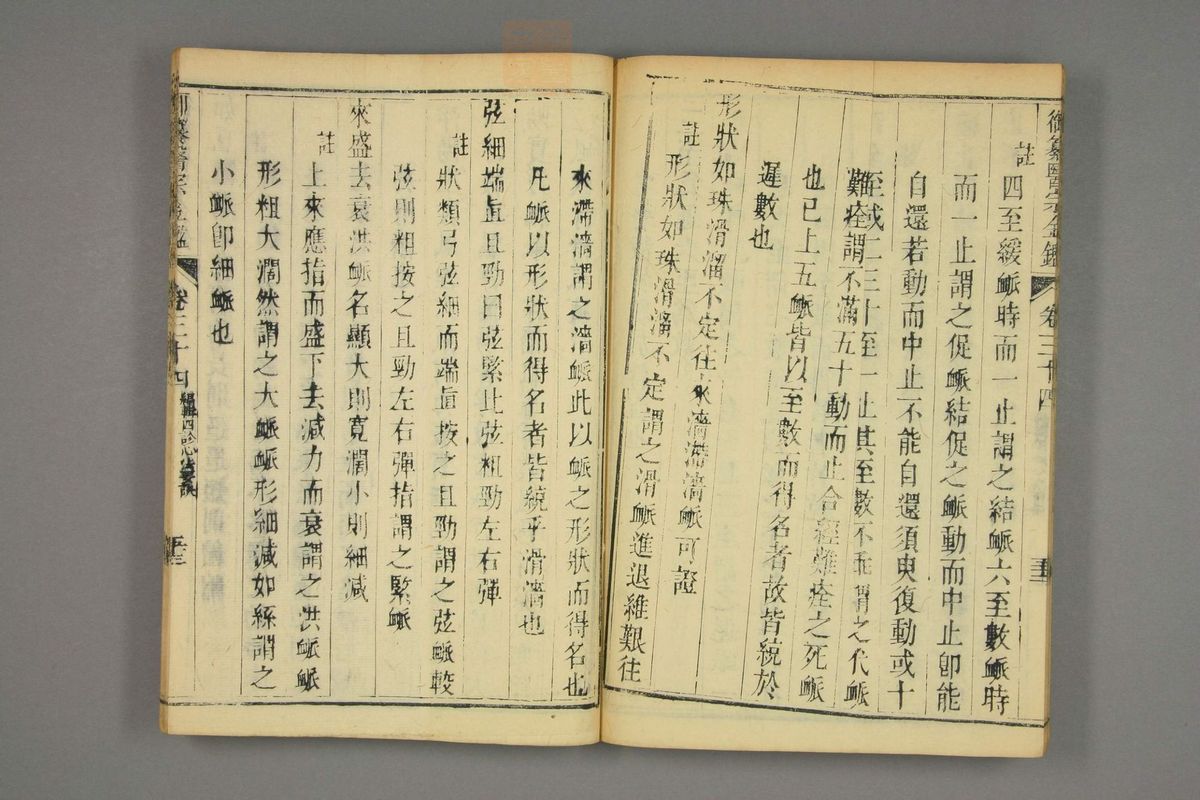 御纂醫宗金鑑 卷三十四
註 四至緩衇時而一止謂之結衇六至數衇時
而一止謂之促衇結促之衇動而中止卽能
自還若動而中止不能自還須臾復動或十
至或二三十至一止其至數不乖謂之代衇
難痊謂不滿五十動而止合經難痊之死衇
也已上五衇皆以至數而得名者故皆統於
遲數也
形狀如珠滑溜不定往來濇滯濇衇可證
註 形狀如珠滑溜不定謂之滑衇進退維艱往
來滯濇謂之濇衇此以衇之形狀而得名也
凡衇以形狀而得名者皆統乎滑濇也
弦細端直且勁曰弦緊比弦粗勁左右彈
註 狀類弓弦細而端直按之且勁謂之弦衇較
弦則粗按之且勁左右彈指謂之緊衇
來盛去衰洪衇名顯大則寬濶小則細減
註 上來應指而盛下去減力而衰謂之洪衇衇
形粗大濶然謂之大衇衇形細減如絲謂之
小衇卽細衇也
卷三十四 編輯四診心法要訣